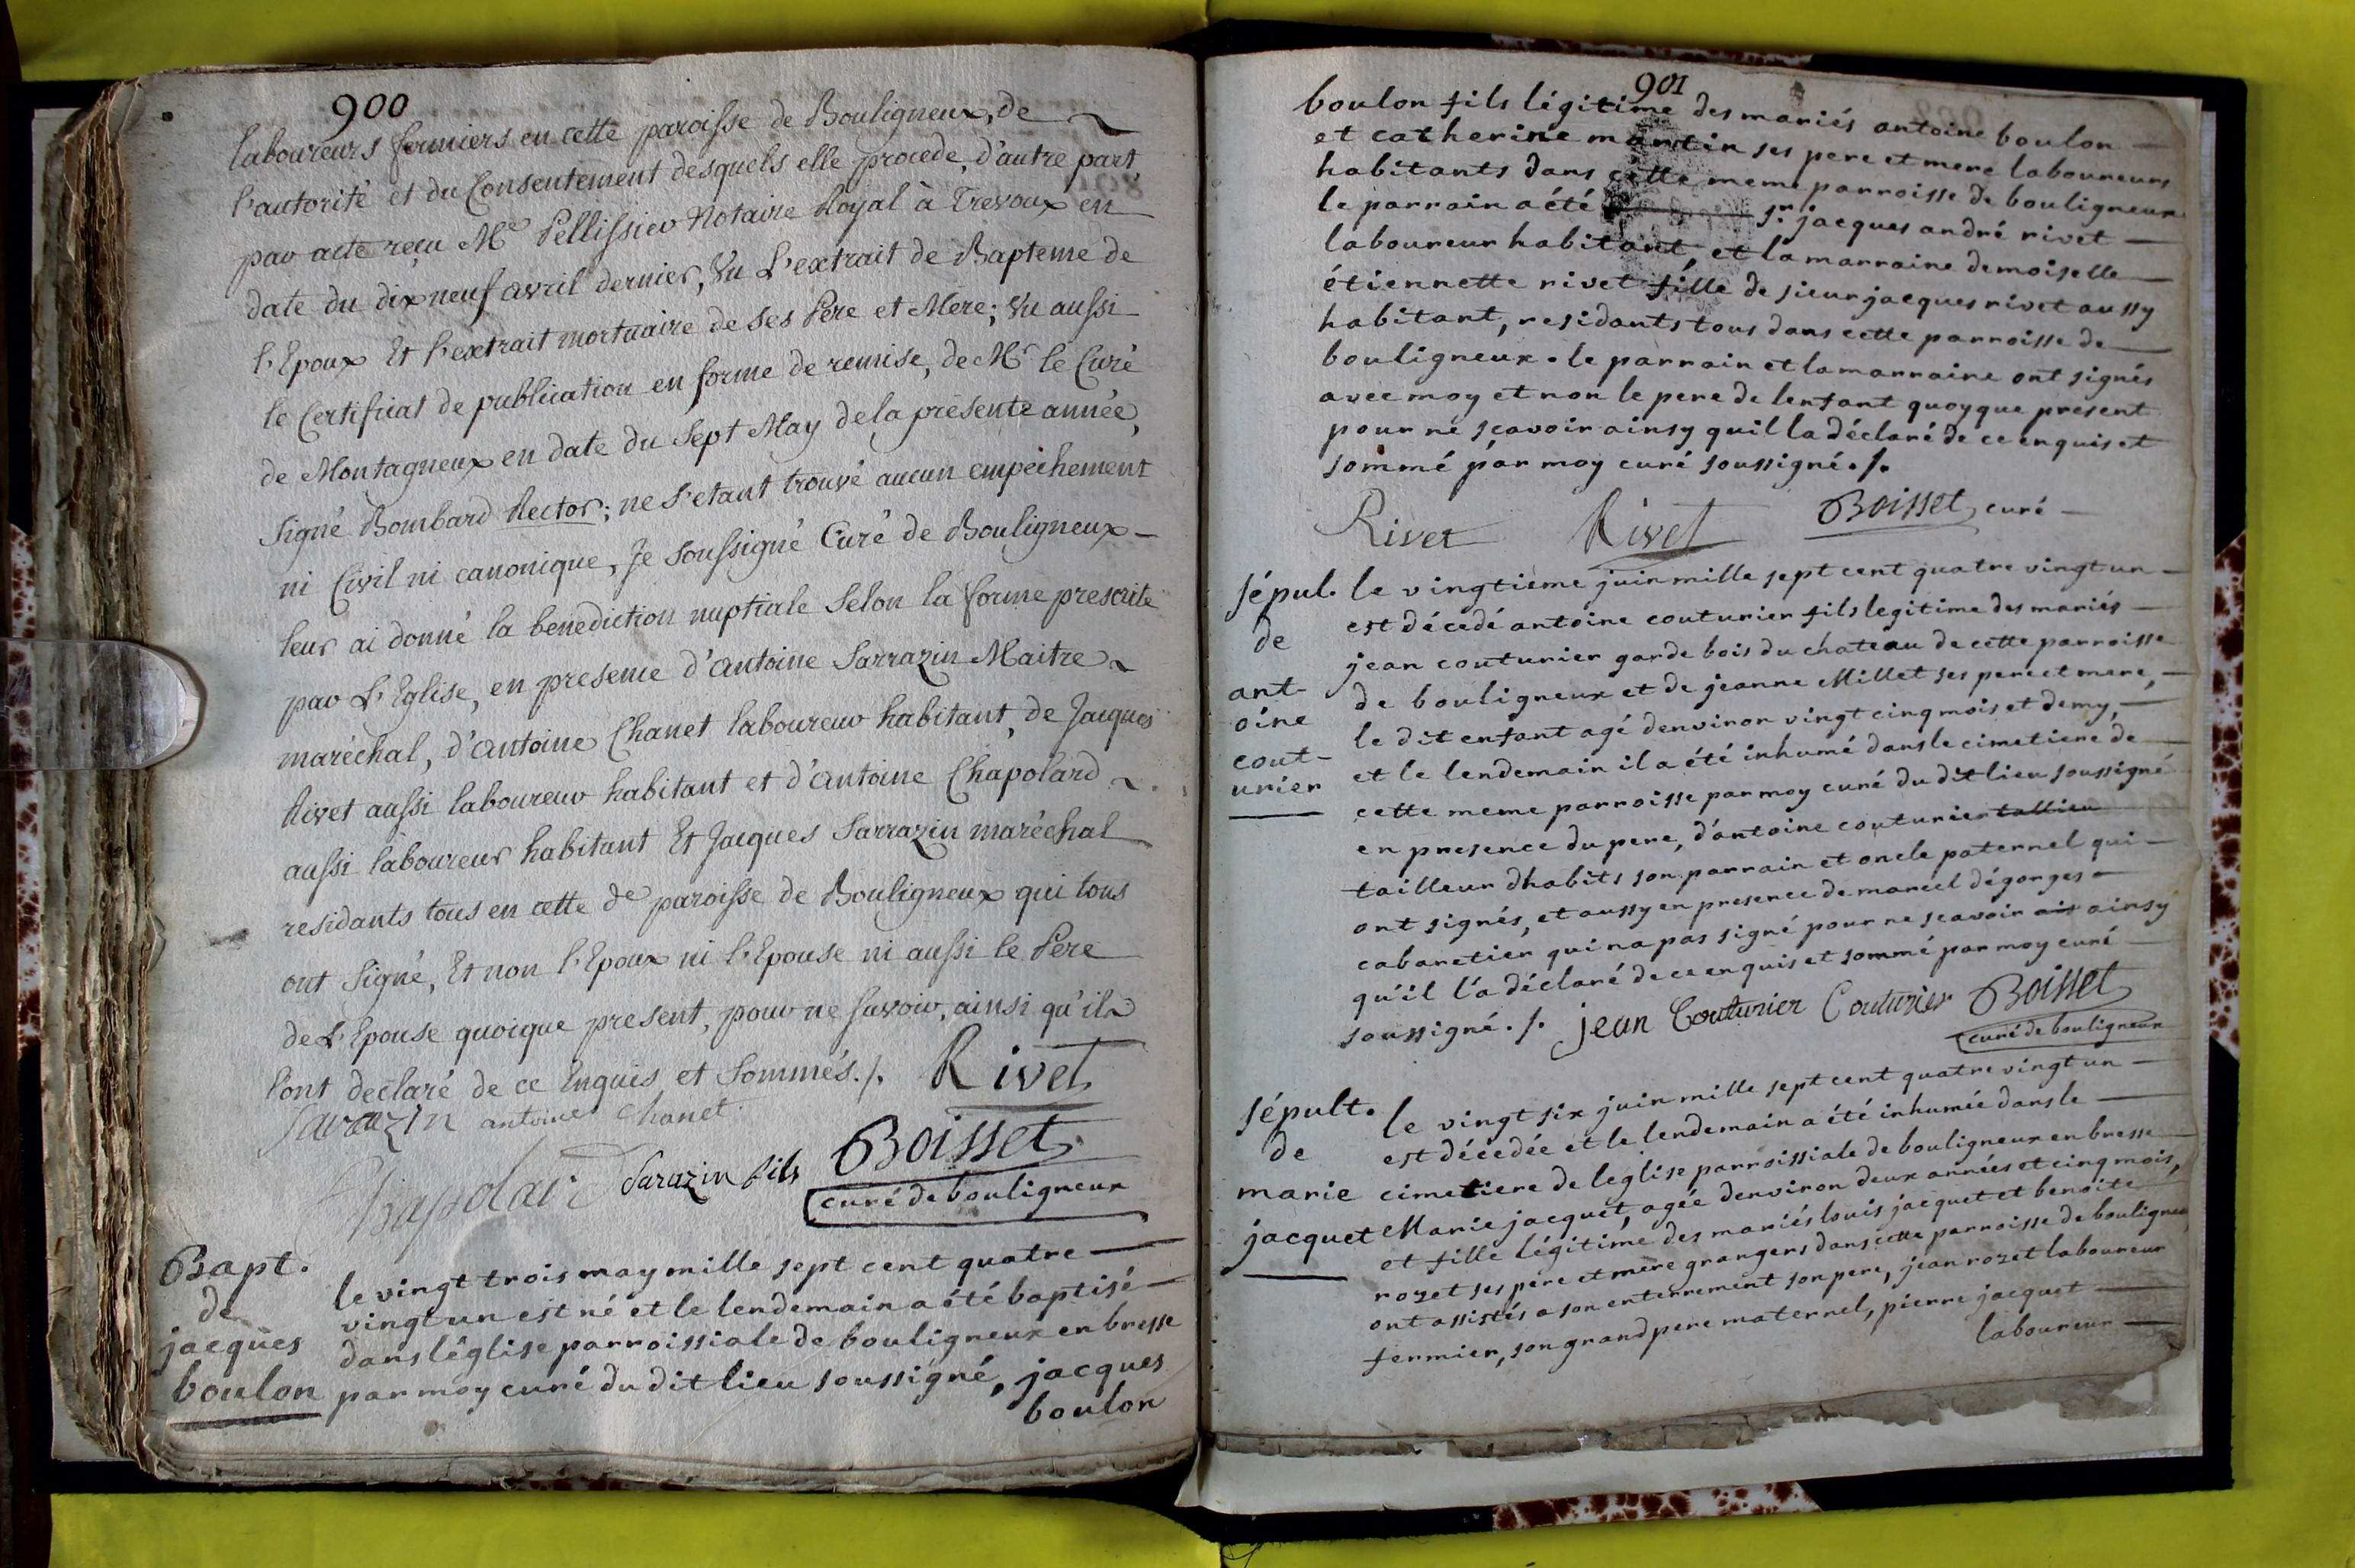 900
laboureurs fermiers en cette paroisse de Bouligneux, de
l'autorité et du Consentement desquels elle procede, d'autre part,
par acte reçu Me Pellissier Notaire Royal à Trevoux en
date du dix neuf avril dernier, Vu L'extrait de Bapteme de
l'Epoux Et l'extrait mortuaire de ses Pere et Mere; Vu aussi
le Certificat de publication en forme de remise, de Mr le Curé
de Montagneux en date du Sept May de la présente année,
Signé Bombard Rector; ne s'etant trouvé aucun empechement
ni Civil ni canonique, Je soussigné Curé de Bouligneux
leur ai donné la benediction nuptiale Selon la forme prescrite
par L'Eglise, en presence d'antoine Sarrazin Maitre
maréchal, d'antoine Chanet laboureur habitant, de Jacques
Rivet aussi laboureur habitant et d'antoine Chapolard
aussi laboureur habitant Et Jacques Sarrazin maréchal
residants tous en cette de paroisse de Bouligneux qui tous
ont Signé, Et non l'Epoux ni l'Epouse ni aussi le Pere
de L'Epouse quoique present, pour ne savoir, ainsi qu'ils
l'ont declaré de ce Enquis et Sommés ./. Rivet
Sarazin antoine Chanet
Chapolar Sarazin fils Boisset
curé de bouligneux
Bapt.
de
jacques
boulon
le vingt trois may mille sept cent quatre
vingt un est né et le lendemain a été baptisé
dans léglise parroissiale de bouligneux en bresse
par moy curé du dit lieu soussigné, jacques
boulon
901
boulon fils légitime des mariés antoine boulon
et catherine martin ses pere et mere laboureurs
habitants dans cette meme parroisse de bouligneux
le parrain a été sr. jacques andré rivet
laboureur habitant, et la marraine demoiselle
étiennette rivet fille de sieur jacques rivet aussy
habitant, residants tous dans cette parroisse de
bouligneux. le parrain et la marraine ont signés
avec moy et non le pere de lenfant quoyque present
pour ne sçavoir ainsy quil la déclaré de ce enquis et
sommé par moy curé soussigné ./.
Rivet Rivet Boisset curé
sépul.
de
ant-
oine
cout-
urier
le vingtieme juin mille sept cent quatre vingt un
est décedé antoine couturier fils legitime des mariés
jean couturier garde bois du chateau de cette parroisse
de bouligneux et de jeanne Millet ses pere et mere,
le dit enfant agé denviron vingt cinq mois et demy,
et le lendemain il a été inhumé dans le cimetiere de
cette meme parroisse par moy curé du dit lieu soussigné
en presence du pere, d'antoine couturier tallieu
tailleur dhabits son parrain et oncle paternel qui
ont signés, et aussy en presence de marcel dégorges
cabaretier qui na pas signé pour ne scavoir ais ainsy
qu'il l'a déclaré de ce enquis et sommé par moy curé
soussigné ./. jean Couturier Couturier Boisset
curé de bouligneux
sépult.
de
marie
jacquet
le vingt six juin mille sept cent quatre vingt un
est décedée et le lendemain a été inhumée dans le
cimetiere de leglise parroissiale de bouligneux en bresse
Marie jacquet, agée denviron deux années et cinq mois,
et fille légitime des mariés louis jacquet et benoite
rozet ses pere et mere grangers dans cette parroisse de bouligneux
ont assistés a son enterrement son pere, jean rozet laboureur
fermier, son grand pere maternel, pierre jacquet
laboureur